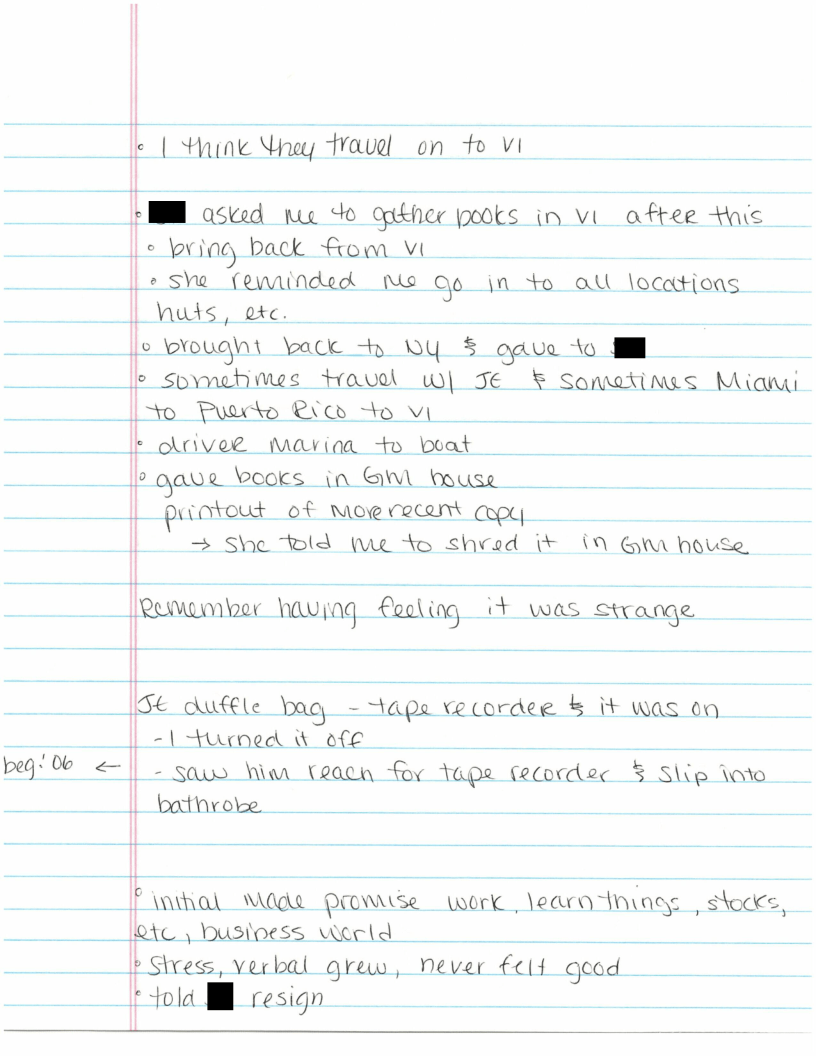 ◦ I think they travel on to VI
◦ asked me to gather books in VI after this
◦ bring back from VI
◦ she reminded me go in to all locations
huts, etc.
◦ brought back to NY & gave to
◦ sometimes travel w/ JE & sometimes Miami
to Puerto Rico to VI
◦ driver marina to boat
◦ gave books in GM house
printout of more recent copy
→ she told me to shred it in GM house
Remember having feeling it was strange
JE duffle bag - tape recorder & it was on
- I turned it off
beg. '06 ← - saw him reach for tape recorder & slip into
bathrobe
◦ initial made promise work, learn things, stocks,
etc, business world
◦ stress, verbal grew, never felt good
◦ told resign